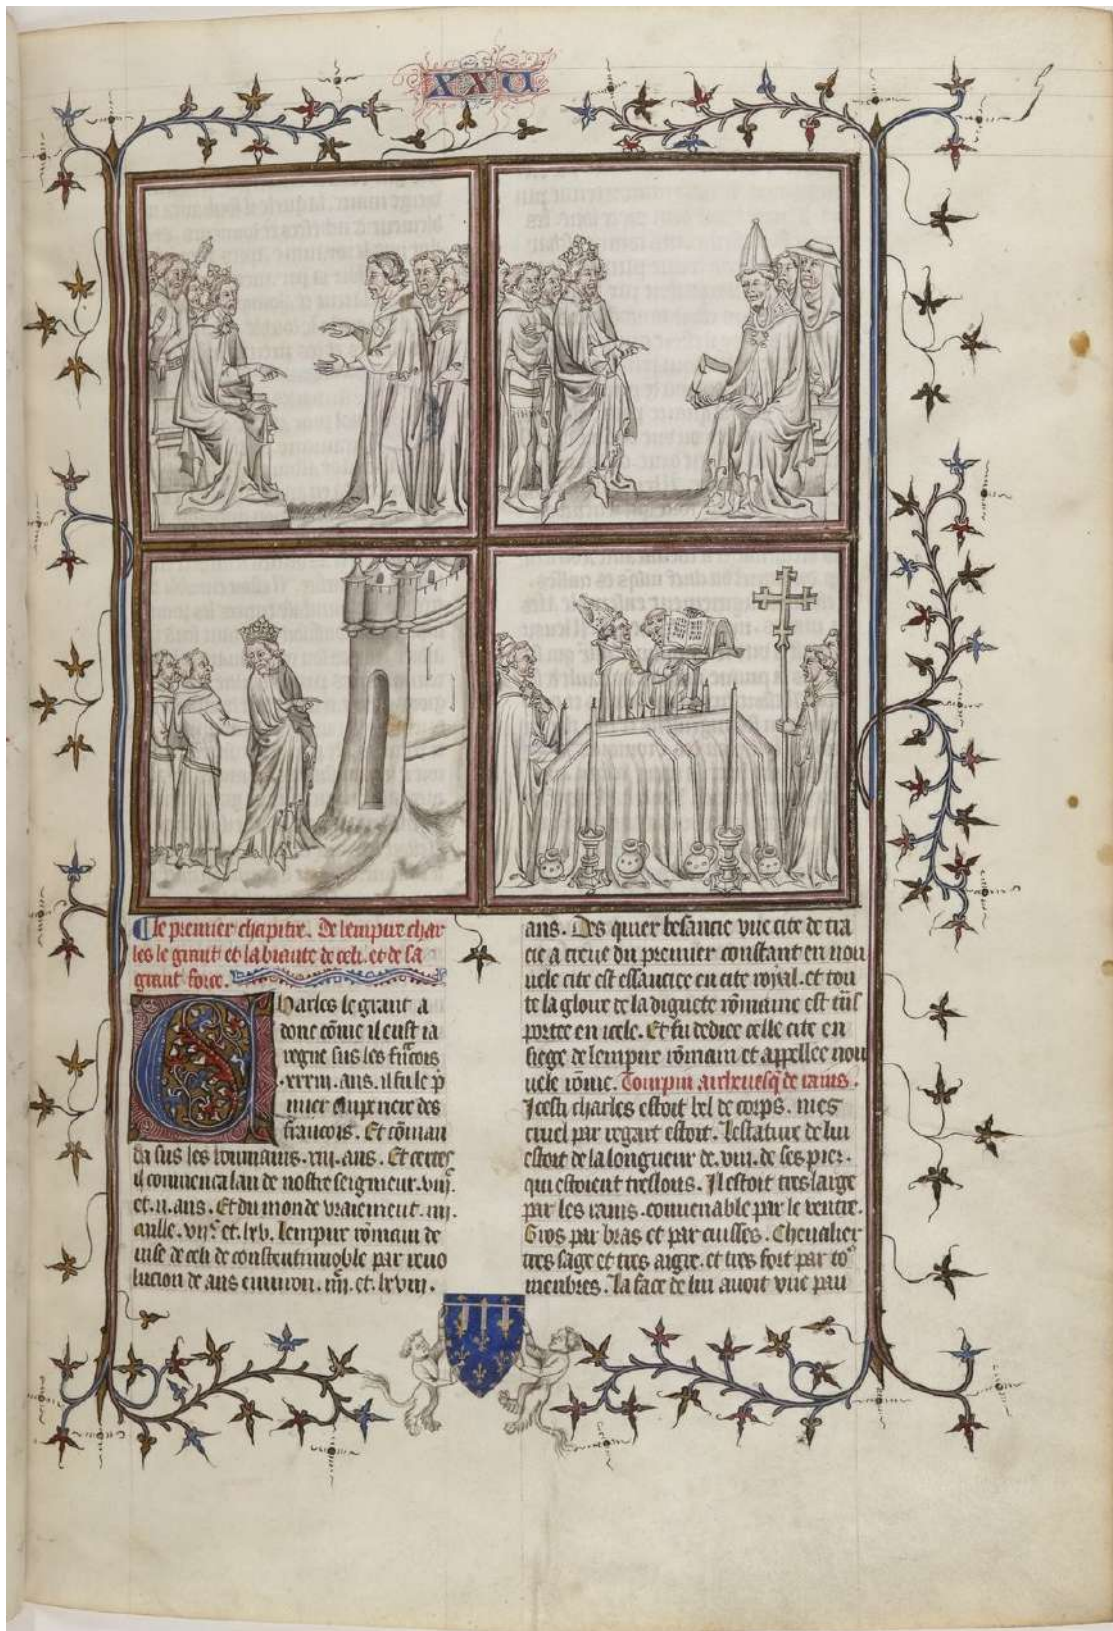 XXV
Le premier chapitre. De lempire char
les le grant et la biaute de celi. et de sa
grant force.
Charles le grant a
donc cōme il eust ia
regne sus les frācois
.xxxiii. ans. il fu le p̄
mier Emperere des
francois. Et cōman
da sus les roumains .xiii. ans. Et certes
il commenca lan de nostre seigneur. viijͨ.
et .ii. ans. Et du monde vraiement .iiij.
mille. vijͨ et. lxv. lempire rōmain de
uise de celi de constentinnoble par reuo
lucion de ans enuiron. iiijͨ. et. lxviij.
ans. Des quier besancie vne cite de tra
cie a creue du premier constant en nou
uele cite est essauciee en cite roial. et tou
te la gloire de la dignete rōmaine est tn̄s
portee en icele. Et fu dediee celle cite en
siege de lempire rōmain et appellee nou
uele rōme. Torpin archeuesq̄ de rains.
Icesti charles estoit bel de corps. mes
cruel par regart estoit. Lestature de lui
estoit de la longueur de. viii. de ses piez.
qui estoient treslons. Il estoit tres large
par les rains. conuenable par le ventre.
Gros par bras et par cuisses. Cheualier
tres sage et tres aigre. et tres fort par to᷒
menbres. La face de lui auoit vne pau